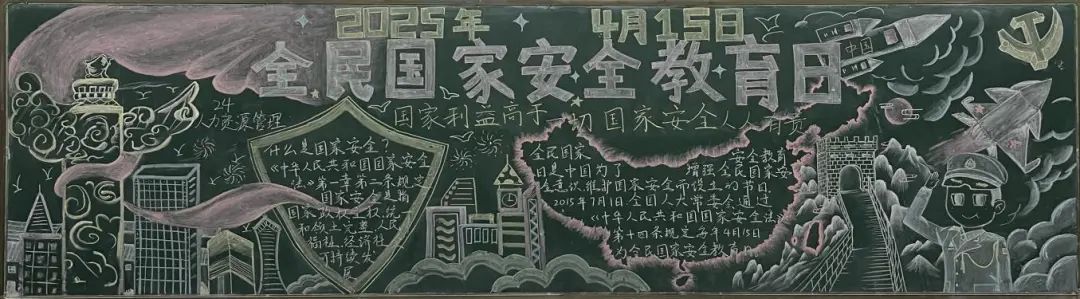 2025年 4月15日
全民国家安全教育日
中国
24
人力资源管理
国家利益高于一切 国家安全人人有责
什么是国家安全?
《中华人民共和国国家安全
法》第一章第二条规定
国家安全是指
国家政权主权、统一
和领土完整、人民
福祉、经济社
可持续发
展
全民国家 安全教育
日是中国为了 增强全民国家安
全意识维护国家安全而设立的节日.
2015年7月1日全国人大常委会通过
《中华人民共和国国家安全法》
第十四条规定每年4月15日
为全民国家安全教育日